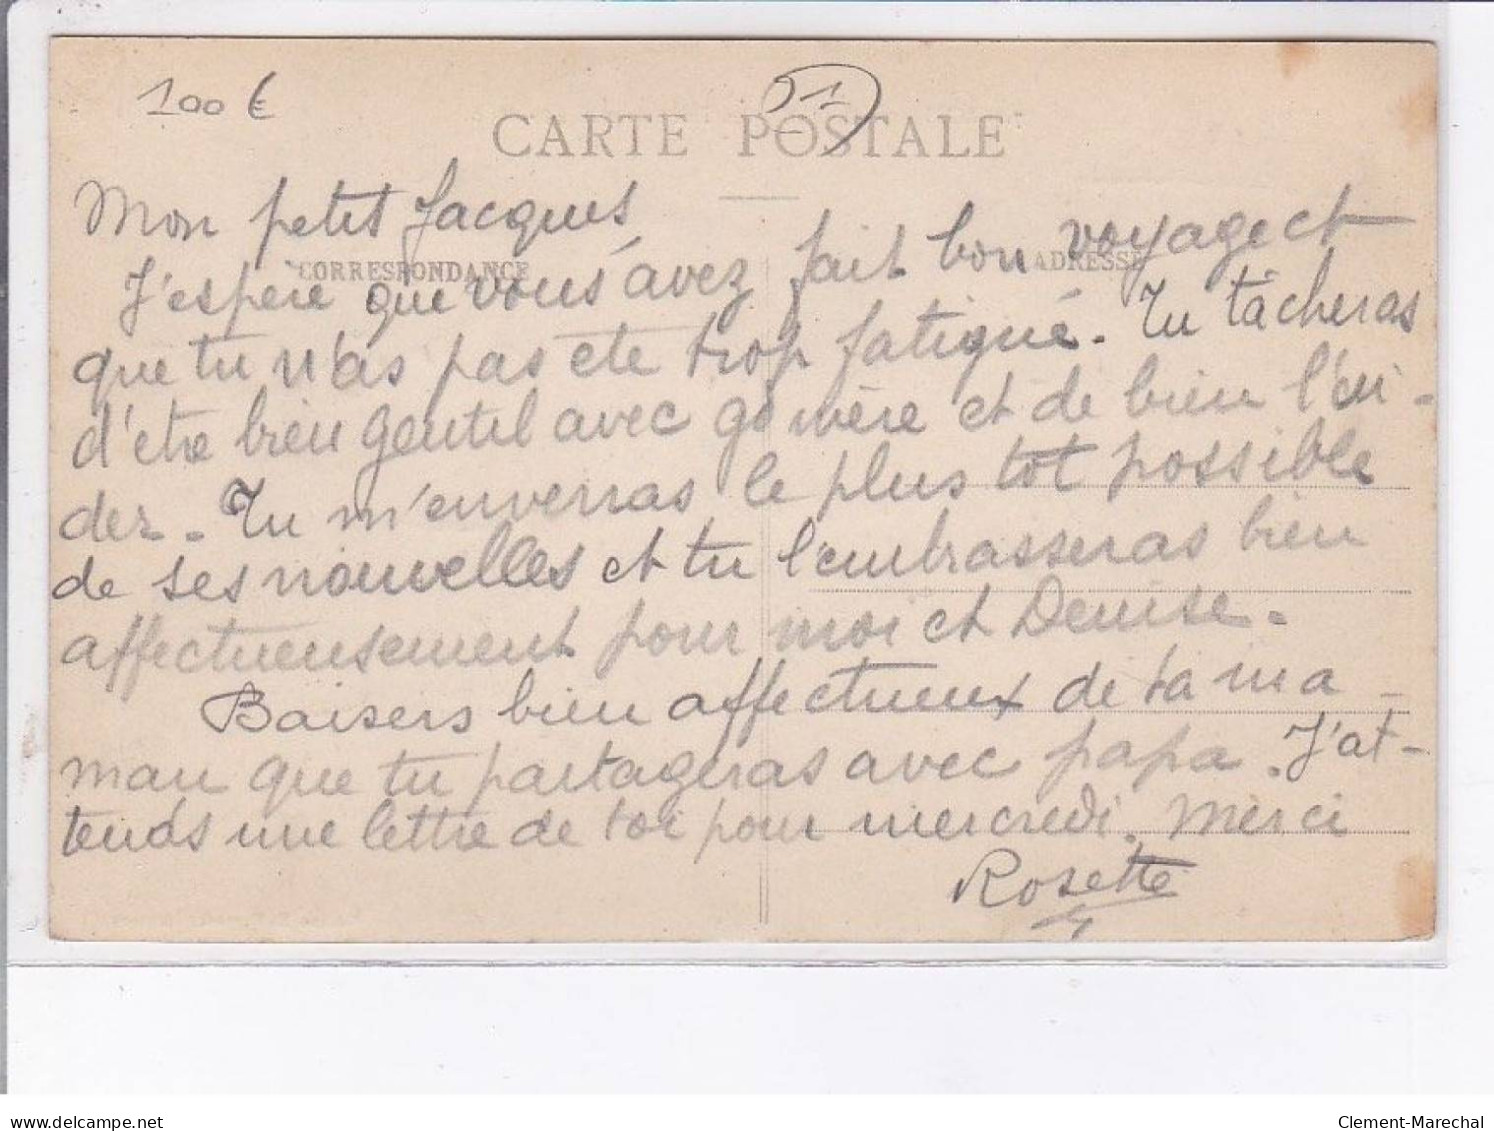 100 €
51
CARTE POSTALE
Mon petit Jacques
CORRESPONDANCE
ADRESSE
J'espère que vous avez fait bon voyage et
que tu n'as pas été trop fatigué. Tu tâcheras
d'etre bien gentil avec gd mère et de bien l'ai-
der. Tu m'enverras le plus tot possible
de ses nouvelles et tu l'embrasseras bien
affectueusement pour moi et Denise.
Baisers bien affectueux de ta ma-
man que tu partageras avec papa. J'at-
tends une lettre de toi pour mercredi. Merci
Rosette
www.delcampe.net
Clement-Marechal